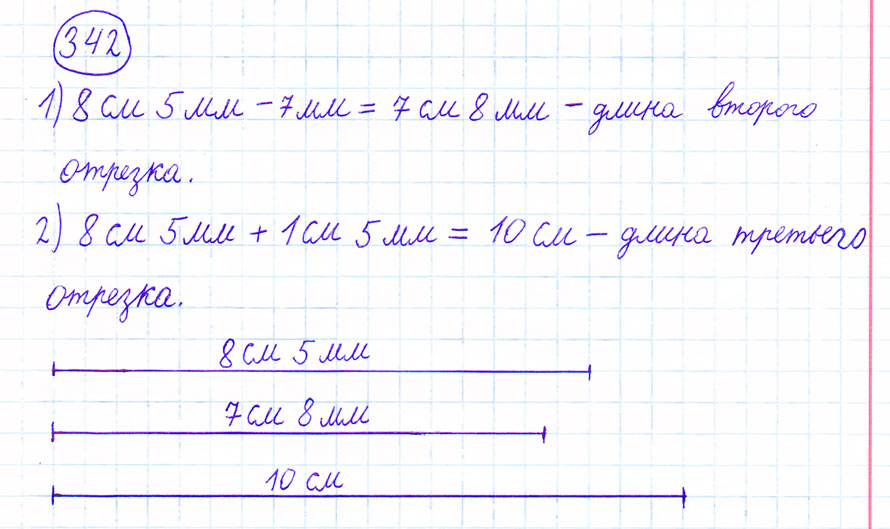 342
1) 8 см 5 мм - 7 мм = 7 см 8 мм - длина второго
отрезка.
2) 8 см 5 мм + 1 см 5 мм = 10 см - длина третьего
отрезка.
8 см 5 мм
7 см 8 мм
10 см